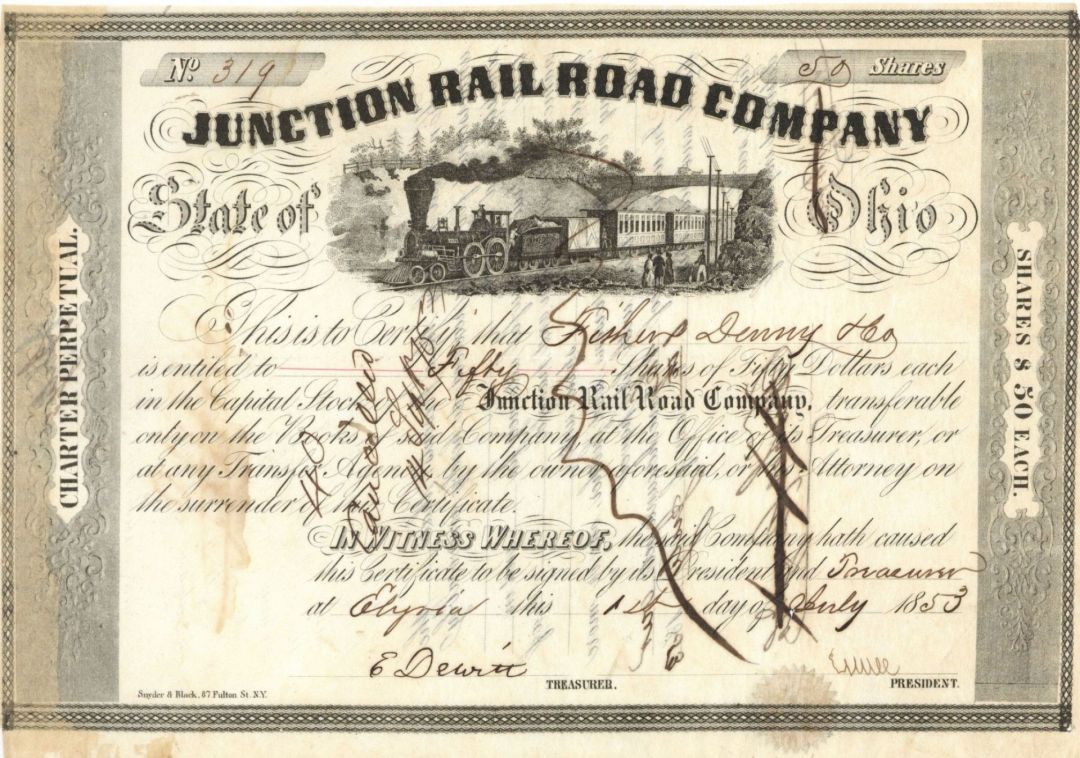 No 319
50 Shares
JUNCTION RAIL ROAD COMPANY
State of Ohio
CHARTER PERPETUAL.
SHARES $ 50 EACH.
This is to Certify that Fisher Denny & Co
is entitled to Fifty Shares of Fifty Dollars each
in the Capital Stock of the Junction Rail Road Company, transferable
only on the Books of said Company at the Office of its Treasurer, or
at any Transfer Agency by the owner aforesaid, or his Attorney on
the surrender of this Certificate.
IN WITNESS WHEREOF, the said Company hath caused
this Certificate to be signed by its President and Treasurer
at Elyria this 1st day of July 1853
E Dewitt
TREASURER.
PRESIDENT.
Snyder & Black, 87 Fulton St. N.Y.
Cancelled